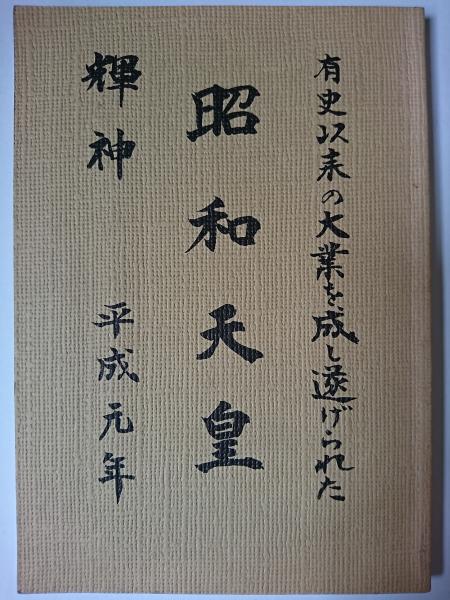 有史以来の大業を成し遂げられた
昭和天皇
輝神 平成元年